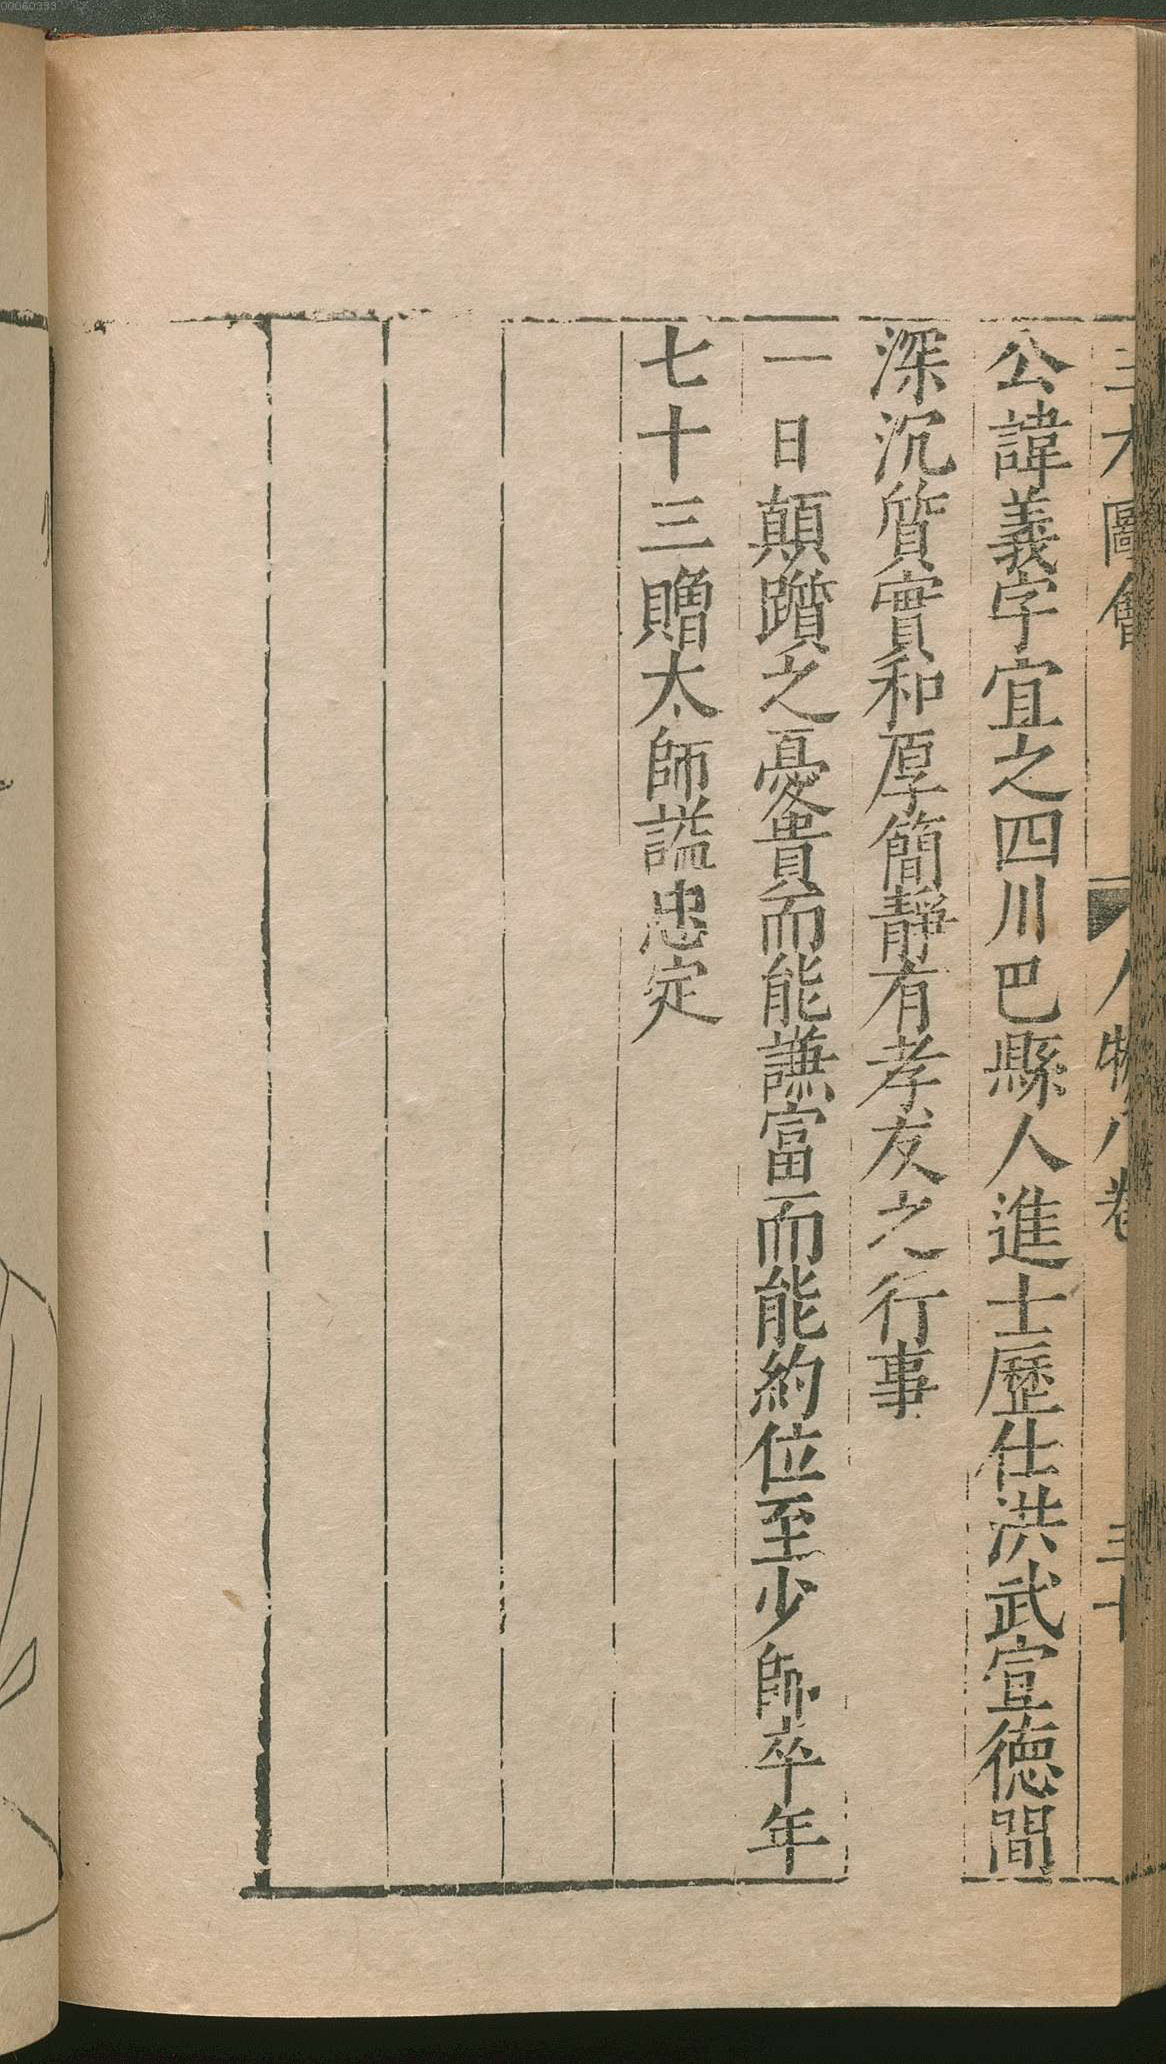 三才圖會 人物八卷 三十
公諱義字宜之四川巴縣人進士歷仕洪武宣德間
深沉質實和厚簡靜有孝友之行事
一日顛躓之憂貴而能謙富而能約位至少師卒年
七十三贈太師謚忠定
00060393